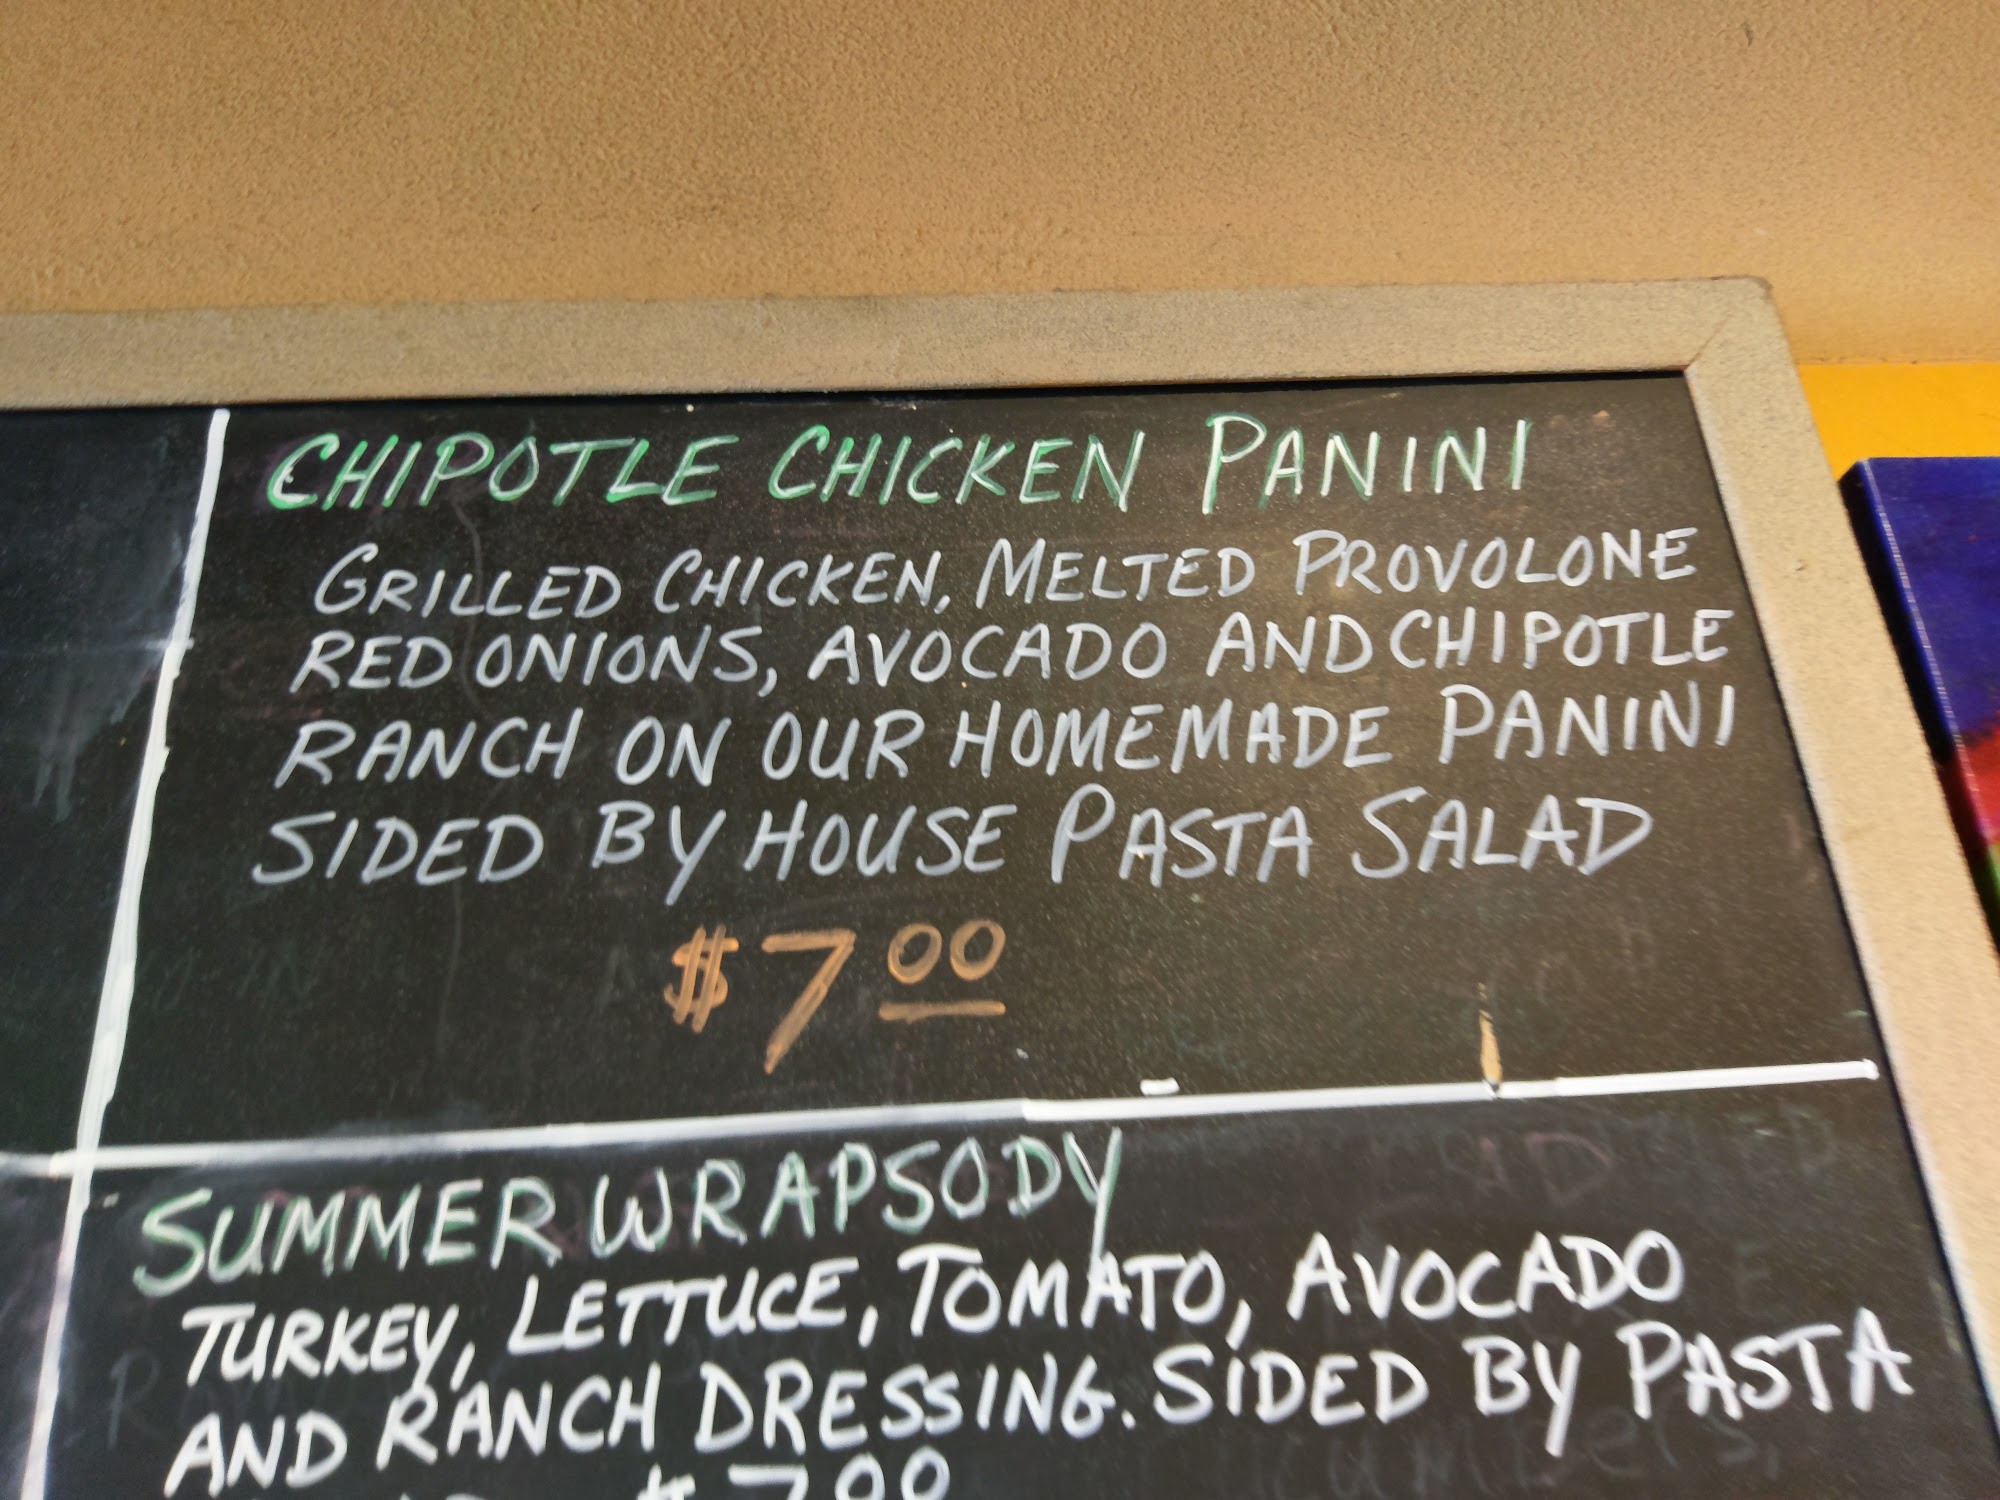 CHIPOTLE CHICKEN PANINI
GRILLED CHICKEN, MELTED PROVOLONE
RED ONIONS, AVOCADO AND CHIPOTLE
RANCH ON OUR HOMEMADE PANINI
SIDED BY HOUSE PASTA SALAD
$7 00
SUMMER WRAPSODY
TURKEY, LETTUCE, TOMATO, AVOCADO
AND RANCH DRESSING. SIDED BY PASTA
$7.00